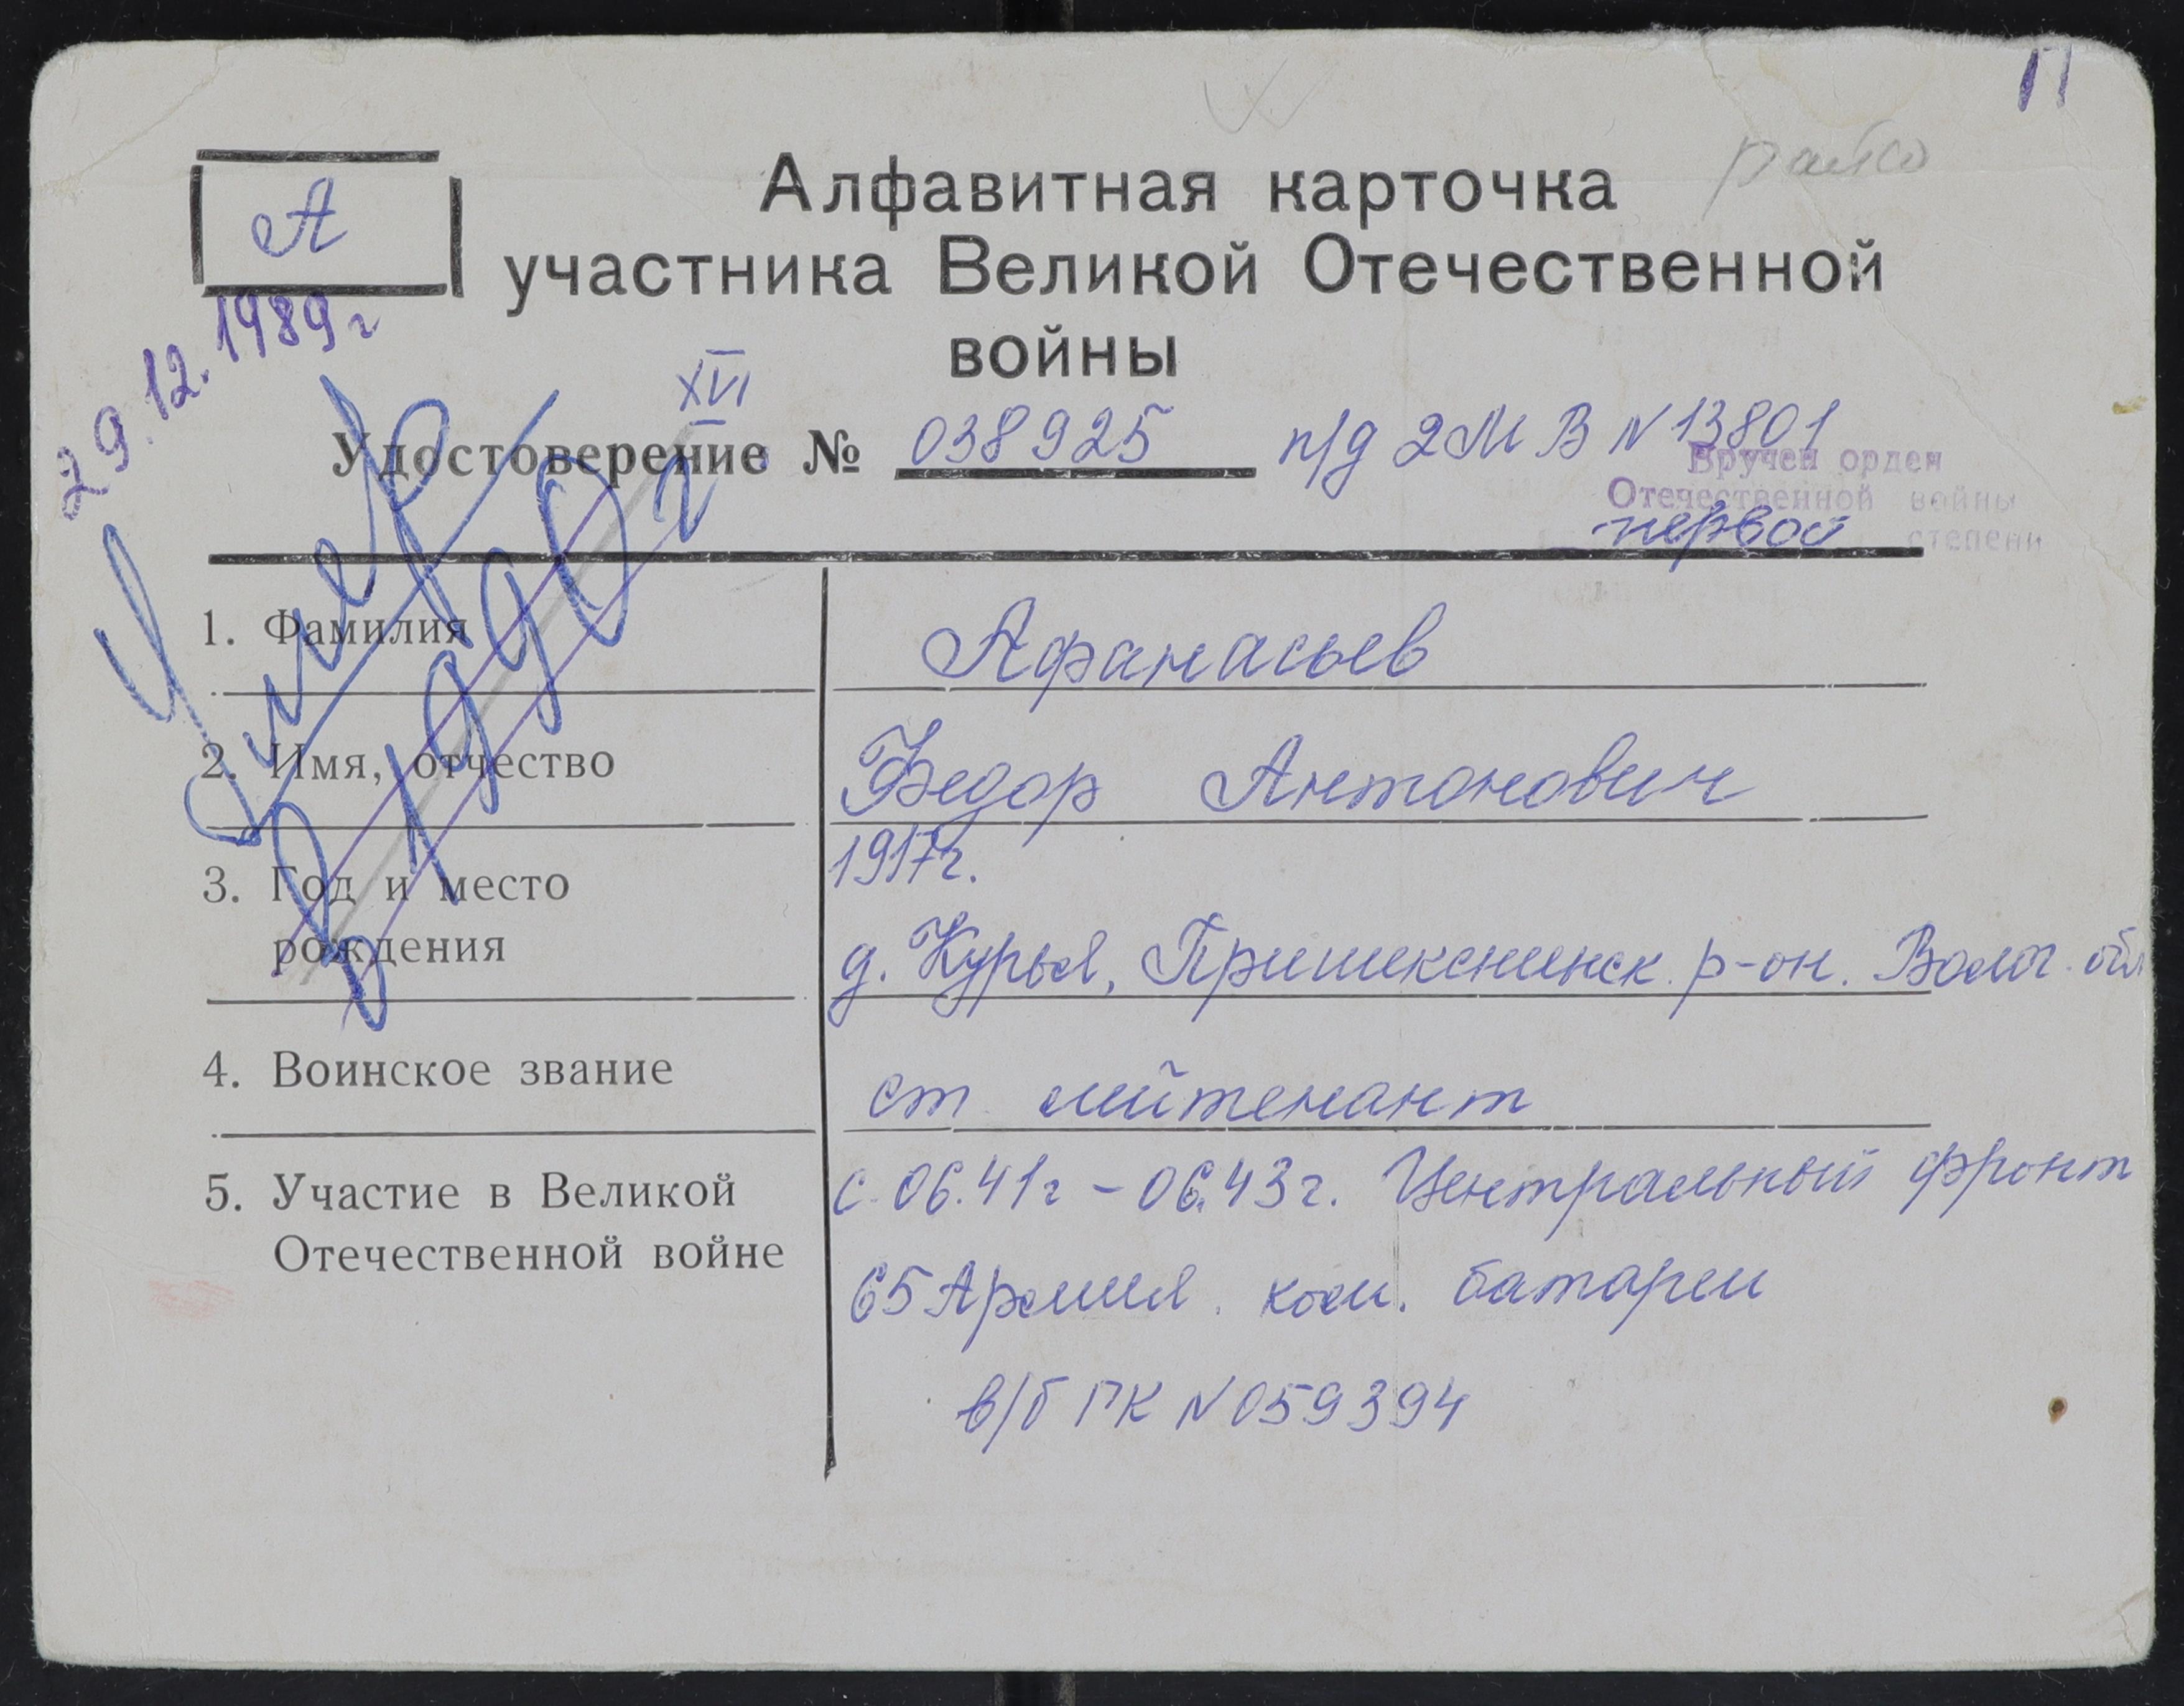 11
А
Алфавитная карточка
участника Великой Отечественной
войны
29.12.1989г
XVI
Удостоверение № 038925 п/д 2МВ N 13801
Вручен орден
Отечественной войны
первой степени
Умер
в 1990г
1. Фамилия Афанасьев
2. Имя, отчество Федор Антонович
3. Год и место 1917г.
рождения д. Курья, Пришекснинск. р-он. Волог. обл
4. Воинское звание ст лейтенант
5. Участие в Великой с 06.41г – 06.43г. Центральный фронт
Отечественной войне 65 Армия. ком. батареи
в/б ГК N 059394